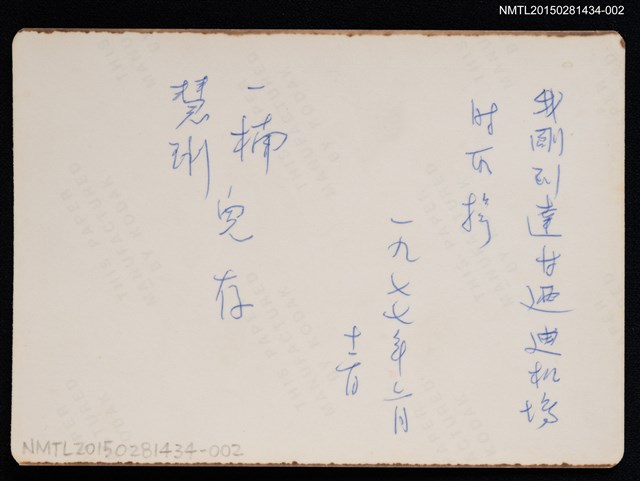 NMTL20150281434-002
我剛到達甘迺迪机場
时所攝
一九七七年六月
十二日
一楠
慧琍
兒存
THIS PAPER
MANUFACTURED
BY KODAK
NMTL20150281434-002